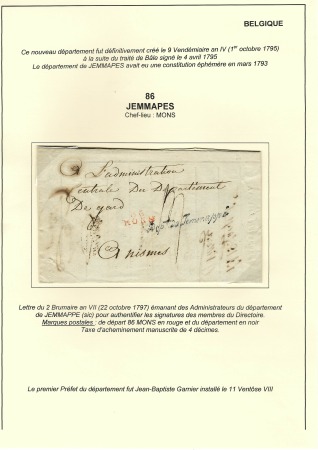 BELGIQUE
Ce nouveau département fut définitivement créé le 9 Vendémiaire an IV (1er octobre 1795)
à la suite du traité de Bâle signé le 4 avril 1795
Le département de JEMMAPES avait eu une constitution éphémère en mars 1793
86
JEMMAPES
Chef-lieu : MONS
a L'administration
Centrale Du Département
De gard
a nismes
Lettre du 2 Brumaire an VII (22 octobre 1797) émanant des Administrateurs du département
de JEMMAPPE (sic) pour authentifier les signatures des membres du Directoire.
Marques postales : de départ 86 MONS en rouge et du département en noir
Taxe d'acheminement manuscrite de 4 décimes.
Le premier Préfet du département fut Jean-Baptiste Garnier installé le 11 Ventôse VIII